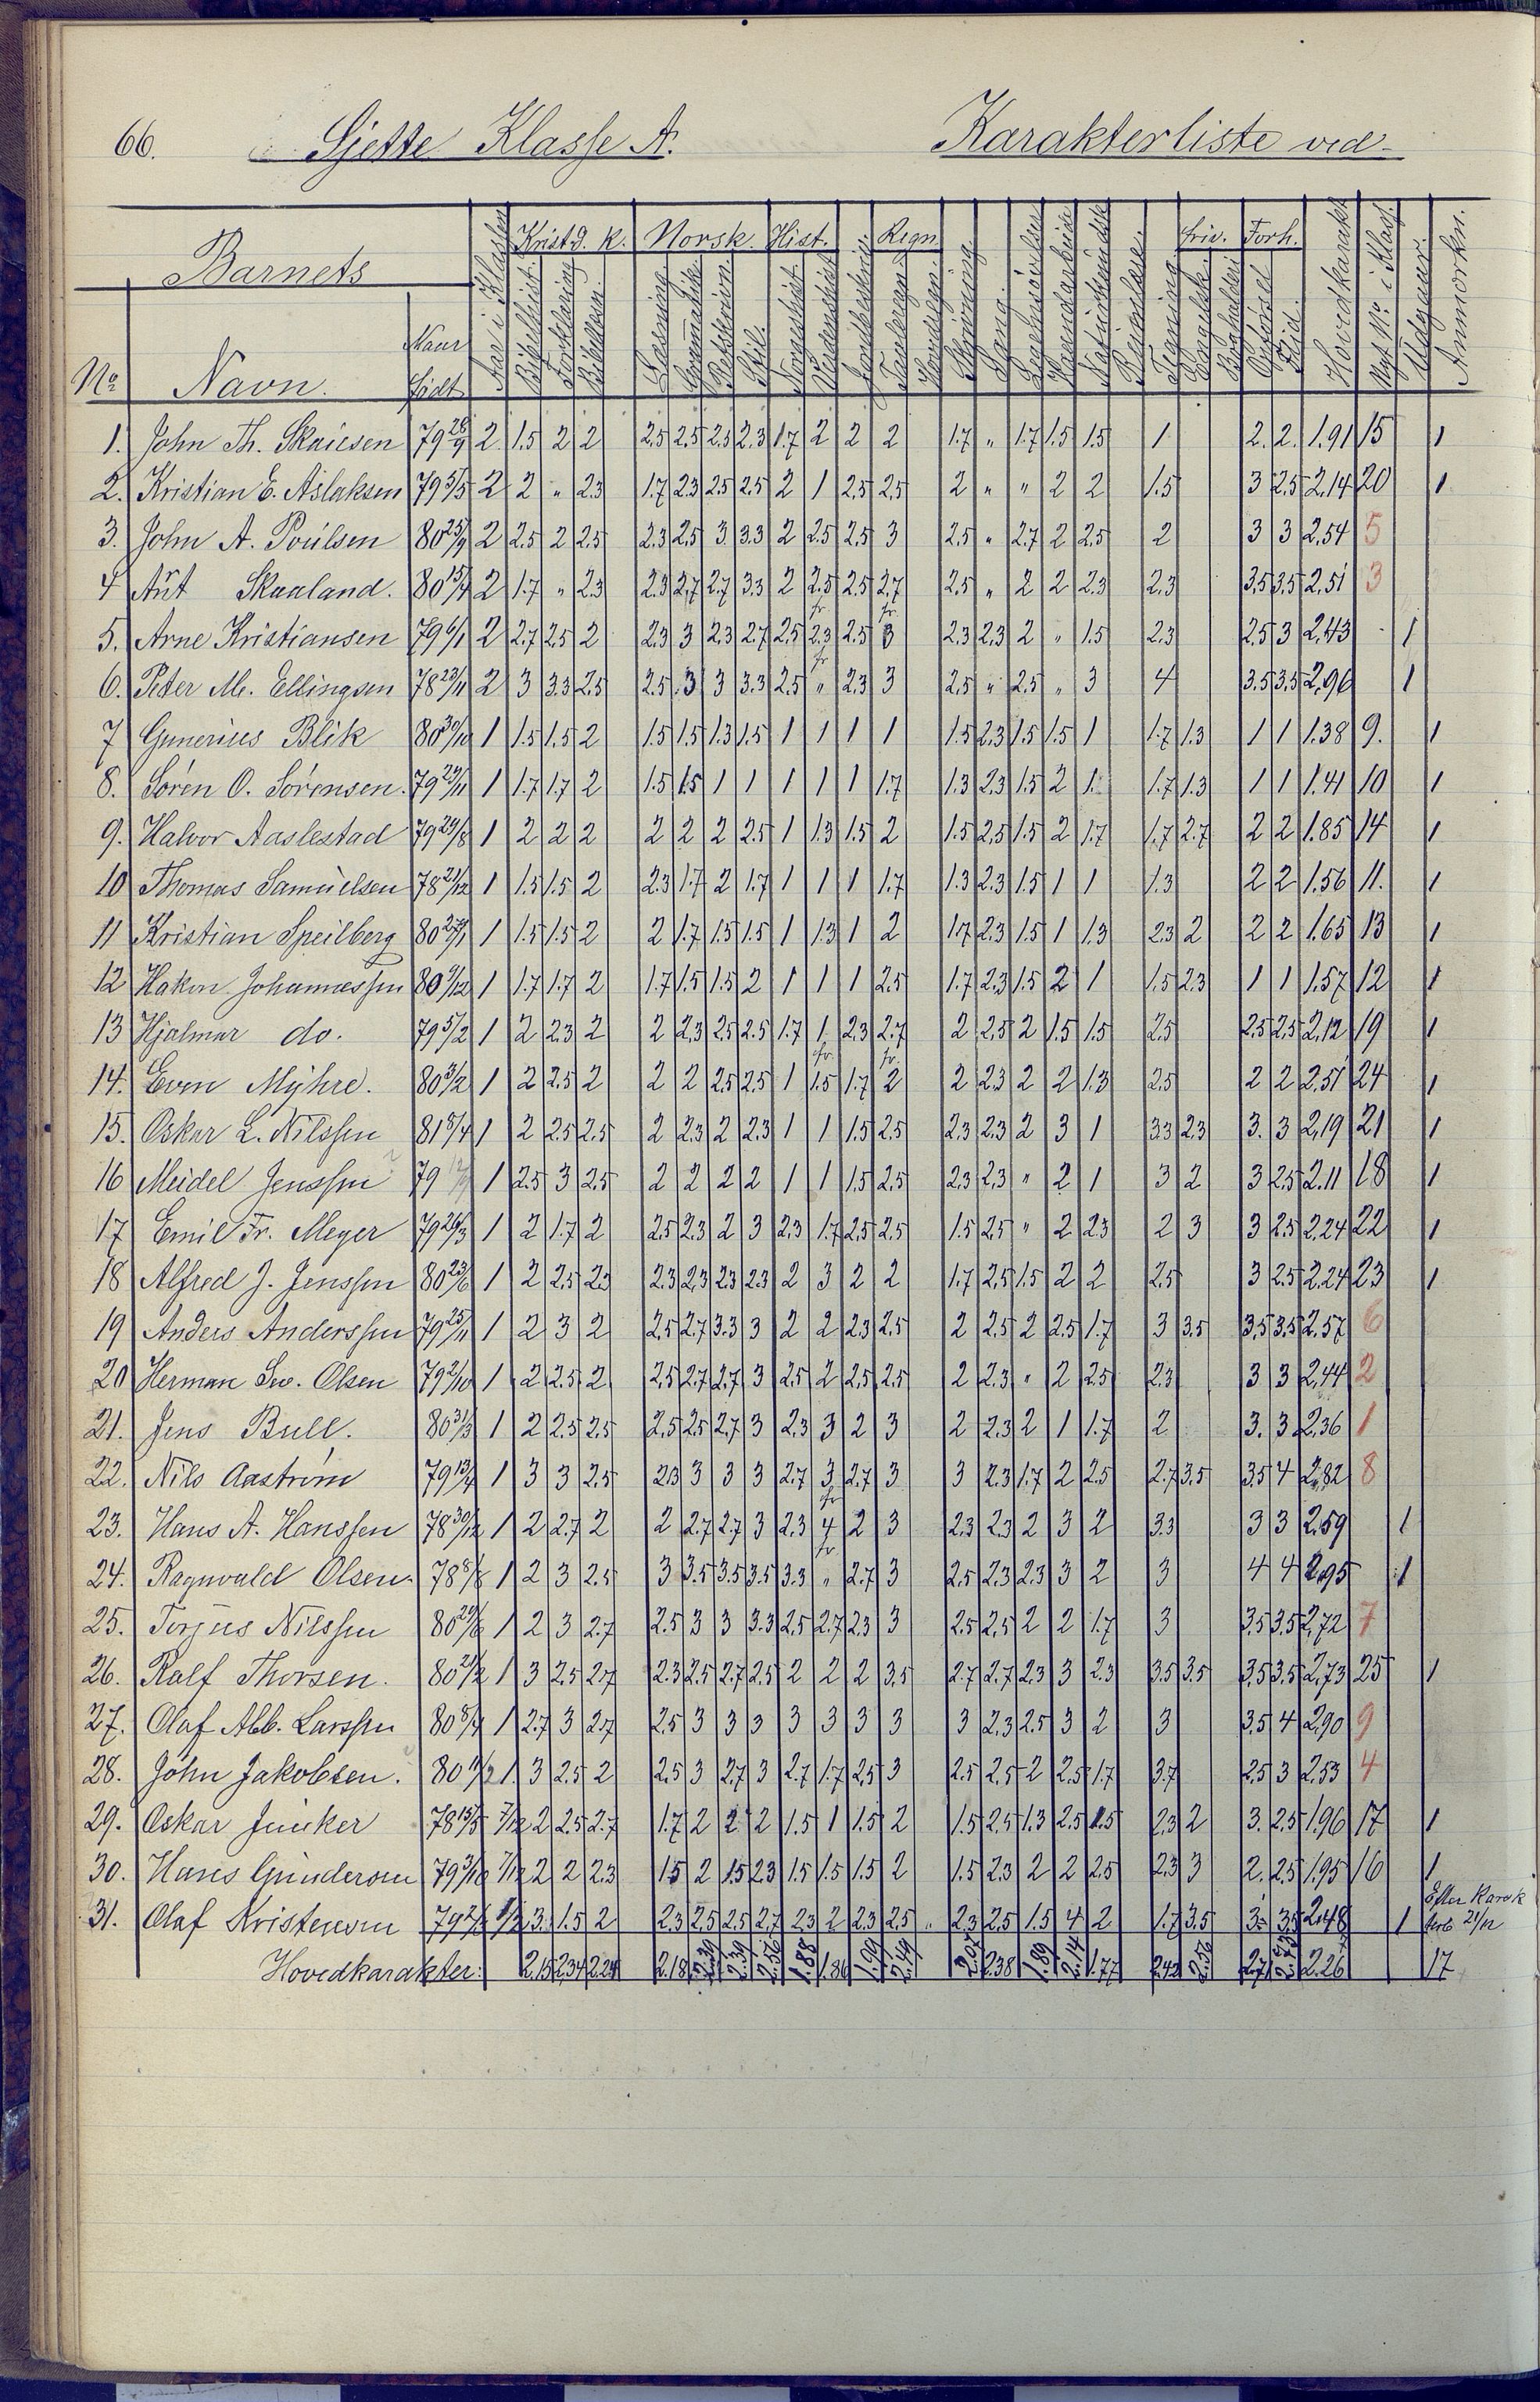 66. Sjette Klasse A. Karakterliste ved
Barnets Aar i Klassen Kristd. k. Norsk. Hist. Regn. friv. Forh. Hovedkarakt
No Navn. Naar født Bibelhist. Forklaring Læsning Grammatik Retskrivn. Stil. Norgeshist. Skrivning Sang. Haandarbeide Tegning Engelsk Opførsel Flid. Udgaaet. Anmærkn.
1. John Th. Skaiesen 79 28/9 2 1.5 2 2 2.5 2.5 2.3 2.3 1.7 2 2 2 1.7 " 1.7 1.5 1.5 1 2. 2. 1.91 15 1
2. Kristian E. Aslaksen 79 5/5 2 2 " 2.3 1.7 2.3 2.5 2.5 2 1 2.5 2.5 2 " " 2 2 1.5 3 2.5 2.14 20 1
3. John A. Poulsen 80 25/9 2 2.5 2 2.5 2.3 2.5 3 3.3 2 2.5 2.5 3 2.5 " 2.7 2 2.5 2 3 3 2.54 5
4 Aut Skaaland. 80 15/4 2 1.7 " 2.3 2.3 2.7 2.7 3.3 2 2.5 2.5 2.7 2.5 " 2 2 2.3 2.3 3.5 3.5 2.51 3
5. Arne Kristiansen 79 6/1 2 2.7 2.5 2 2.3 3 2.3 2.7 2.5 fr 2.3 2.5 fr 3 2.3 2.3 2 " 1.5 2.3 2.5 3 2.43 1
6. Peter M. Ellingsen 78 23/11 2 3 3.3 2.5 2.5 3 3 3.3 2.5 fr " 2.3 3 2.5 " 2.5 " 3 4 3.5 3.5 2.96 1
7 Gunerius Blik 80 30/10 1 1.5 1.5 2 1.5 1.5 1.3 1.5 1 1 1 1 1.5 2.3 1.5 1.5 1 1.7 1.3 1 1 1.38 9. 1
8. Søren O. Sørensen. 79 29/11 1 1.7 1.7 2 1.5 1.5 1 1 1 1 1 1.7 1.3 2.3 1.5 2 1. 1.7 1.3 1 1 1.41 10 1
9. Halvor Aaslestad 79 29/8 1 2 2 2 2 2 2 2.5 1 1.3 1.5 2 1.5 2.5 1.5 2 1.7 1.7 2.7 2 2 1.85 14 1
10 Thomas Samuelsen 78 21/12 1 1.5 1.5 2 2.3 1.7 2 1.7 1 1 1 1.7 1.3 2.3 1.5 1 1 1.3 2 2 1.56 11. 1
11 Kristian Speilberg 80 27/1 1 1.5 1.5 2 2 1.7 1.5 1.5 1 1.3 1 2 1.7 2.3 1.5 1 1.3 2.3 2 2 2 1.65 13 1
12 Hakon Johannessen 80 9/12 1 1.7 1.7 2 1.7 1.5 1.5 2 1 1 1 2.5 1.7 2.3 1.5 2 1 1.5 2.3 1 1 1.57 12 1
13 Hjalmar do. 79 5/2 1 2 2.3 2 2 2.3 2.5 2.5 1.7 1 2.3 2.7 2 2.5 2 1.5 1.5 2.5 2.5 2.5 2.12 19 1
14. Even Myhre. 80 3/2 1 2 2.5 2 2 2 2.5 2.5 1 fr 1.5 1.7 fr 2 2 2.3 2 2 1.3 2.5 2 2 2.51 24 1
15. Oskar L. Nilssen 81 8/4 1 2 2.5 2.5 2 2.3 2 2.3 1 1 1.5 2.5 2.3 2.3 2 3 1 3.3 2.3 3. 3 2.19 21 1
16 Meidel Jenssen 79 1 2.5 3 2.5 2 2 2 2 1 1 1.5 2.5 2.3 2.3 " 2 1 3 2 3 2.5 2.11 18 1
17 Emil Fr. Meyer 79 26/3 1 2 1.7 2 2.5 2.3 2 3 2.3 1.7 2.5 2.5 1.5 2.5 " 2 2.3 2 3 3 2.5 2.24 22 1
18 Alfred J. Jenssen 80 23/6 1 2 2.5 2.3 2.3 2.3 2.3 2.3 2 3 2 2 1.7 2.5 1.5 2 2 2.5 3 2.5 2.24 23 1
19 Anders Anderssen 79 25/11 1 2 3 2 2.5 2.7 3.3 3 2 2 2.3 2.5 2 2.5 2 2.5 1.7 3 3.5 3.5 3.5 2.57 6
20 Herman Sev. Olsen 79 2/10 1 2 2.5 2 2.5 2.7 2.7 3 2.5 2 2.5 2.5 2 2.3 " 2 2.5 2.3 3 3 2.44 2
21. Jens Bull. 80 31/3 1 2 2.5 2.5 2.5 2.5 2.7 3 2.3 3 2 3 2 2.3 2 1 1.7 2 3. 3 2.36 1
22. Nils Aastrøm 79 13/4 1 3 3 2.5 2.3 3 3 3 2.7 3 2.7 3 3 2.3 1.7 2 2.5 2.7 3.5 3.5 4 2.82 8
23. Hans A. Hanssen 78 30/12 1 2 2.7 2 2 2.7 2.7 3 2.3 fr 4 2 3 2.3 2.3 2 3 2 3.3 3 3 2.59 1
24. Ragnvald Olsen. 78 8/8 1 2 3 2.5 3 3.5 3.5 3.5 3.3 fr " 2.7 3 2.5 2.3 2.3 3 2 3 4 4 2.95 1
25. Torjus Nilssen 80 29/6 1 2 3 2.7 2.5 3 3 3.3 2.5 2.7 2.3 3 2.5 2.5 2 2 1.7 3 3.5 3.5 2.72 7
26. Ralf Thorsen. 80 21/2 1 3 2.5 2.7 2.3 2.5 2.7 2.5 2 2 2 3.5 2.7 2.7 2.3 3 2.3 3.5 3.5 3.5 3.5 2.73 25 1
27. Olaf Alb. Larssen 80 8/4 1 2.7 3 2.7 2.5 3 3 3 3 3 3 3 3 2.3 2.5 3 2 3 3.5 4 2.90 9
28. John Jakobsen. 80 1. 3 2.5 2 2.5 3 2.7 3 2.7 1.7 2.5 3 2.5 2.5 2 2.5 1.7 3.7 2.5 3 2.53 4
29. Oskar Junker 78 15/5 7/12 2 2.5 2.7 1.7 2 2 2 1.5 1 1.5 2 1.5 2.5 1.3 2.5 1.5 2.3 2 3. 2.5 1.96 17 1
30. Hans Gunderson 79 3/10 7/12 2 2 2.3 1.5 2 1.5 2.3 1.5 1.5 1.5 2 1.5 2.3 2 2 2.5 2.3 3 2. 2.5 1.95 16 1
31. Olaf Kristensen 79 2/3 1/3 3. 1.5 2 2.3 2.5 2.5 2.7 2.3 2 2.3 2.5 " 2.3 2.5 1.5 4 2 1.7 3.5 3. 3.5 2.48 1 Efter Karak 21/12
Hovedkarakter: 2.15 2.34 2.24 2.18 2.39 2.39 2.56 1.88 1.86 1.99 2.49 2.07 2.38 1.89 2.14 1.77 2.42 2.56 2.71 2.26 17